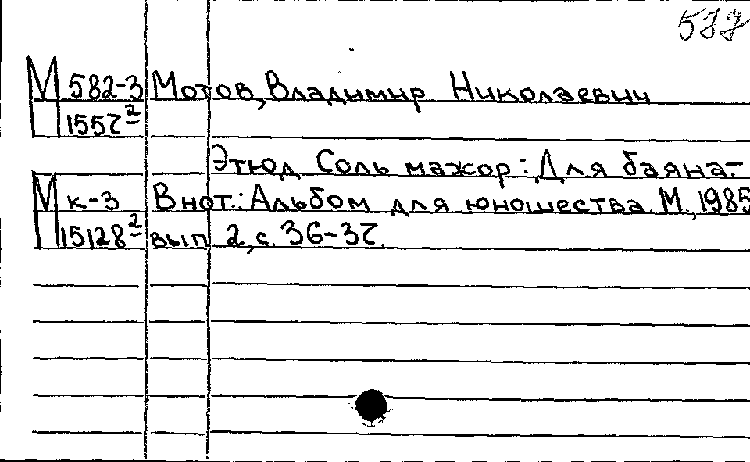 577
М 582-3 Мотов, Владимир Николаевич
П 1557²
Этюд Соль мажор: Для баяна.-
М к-3 В нот.: Альбом для юношества. М., 1985
П 15128² вып. 2, с. 36-37.